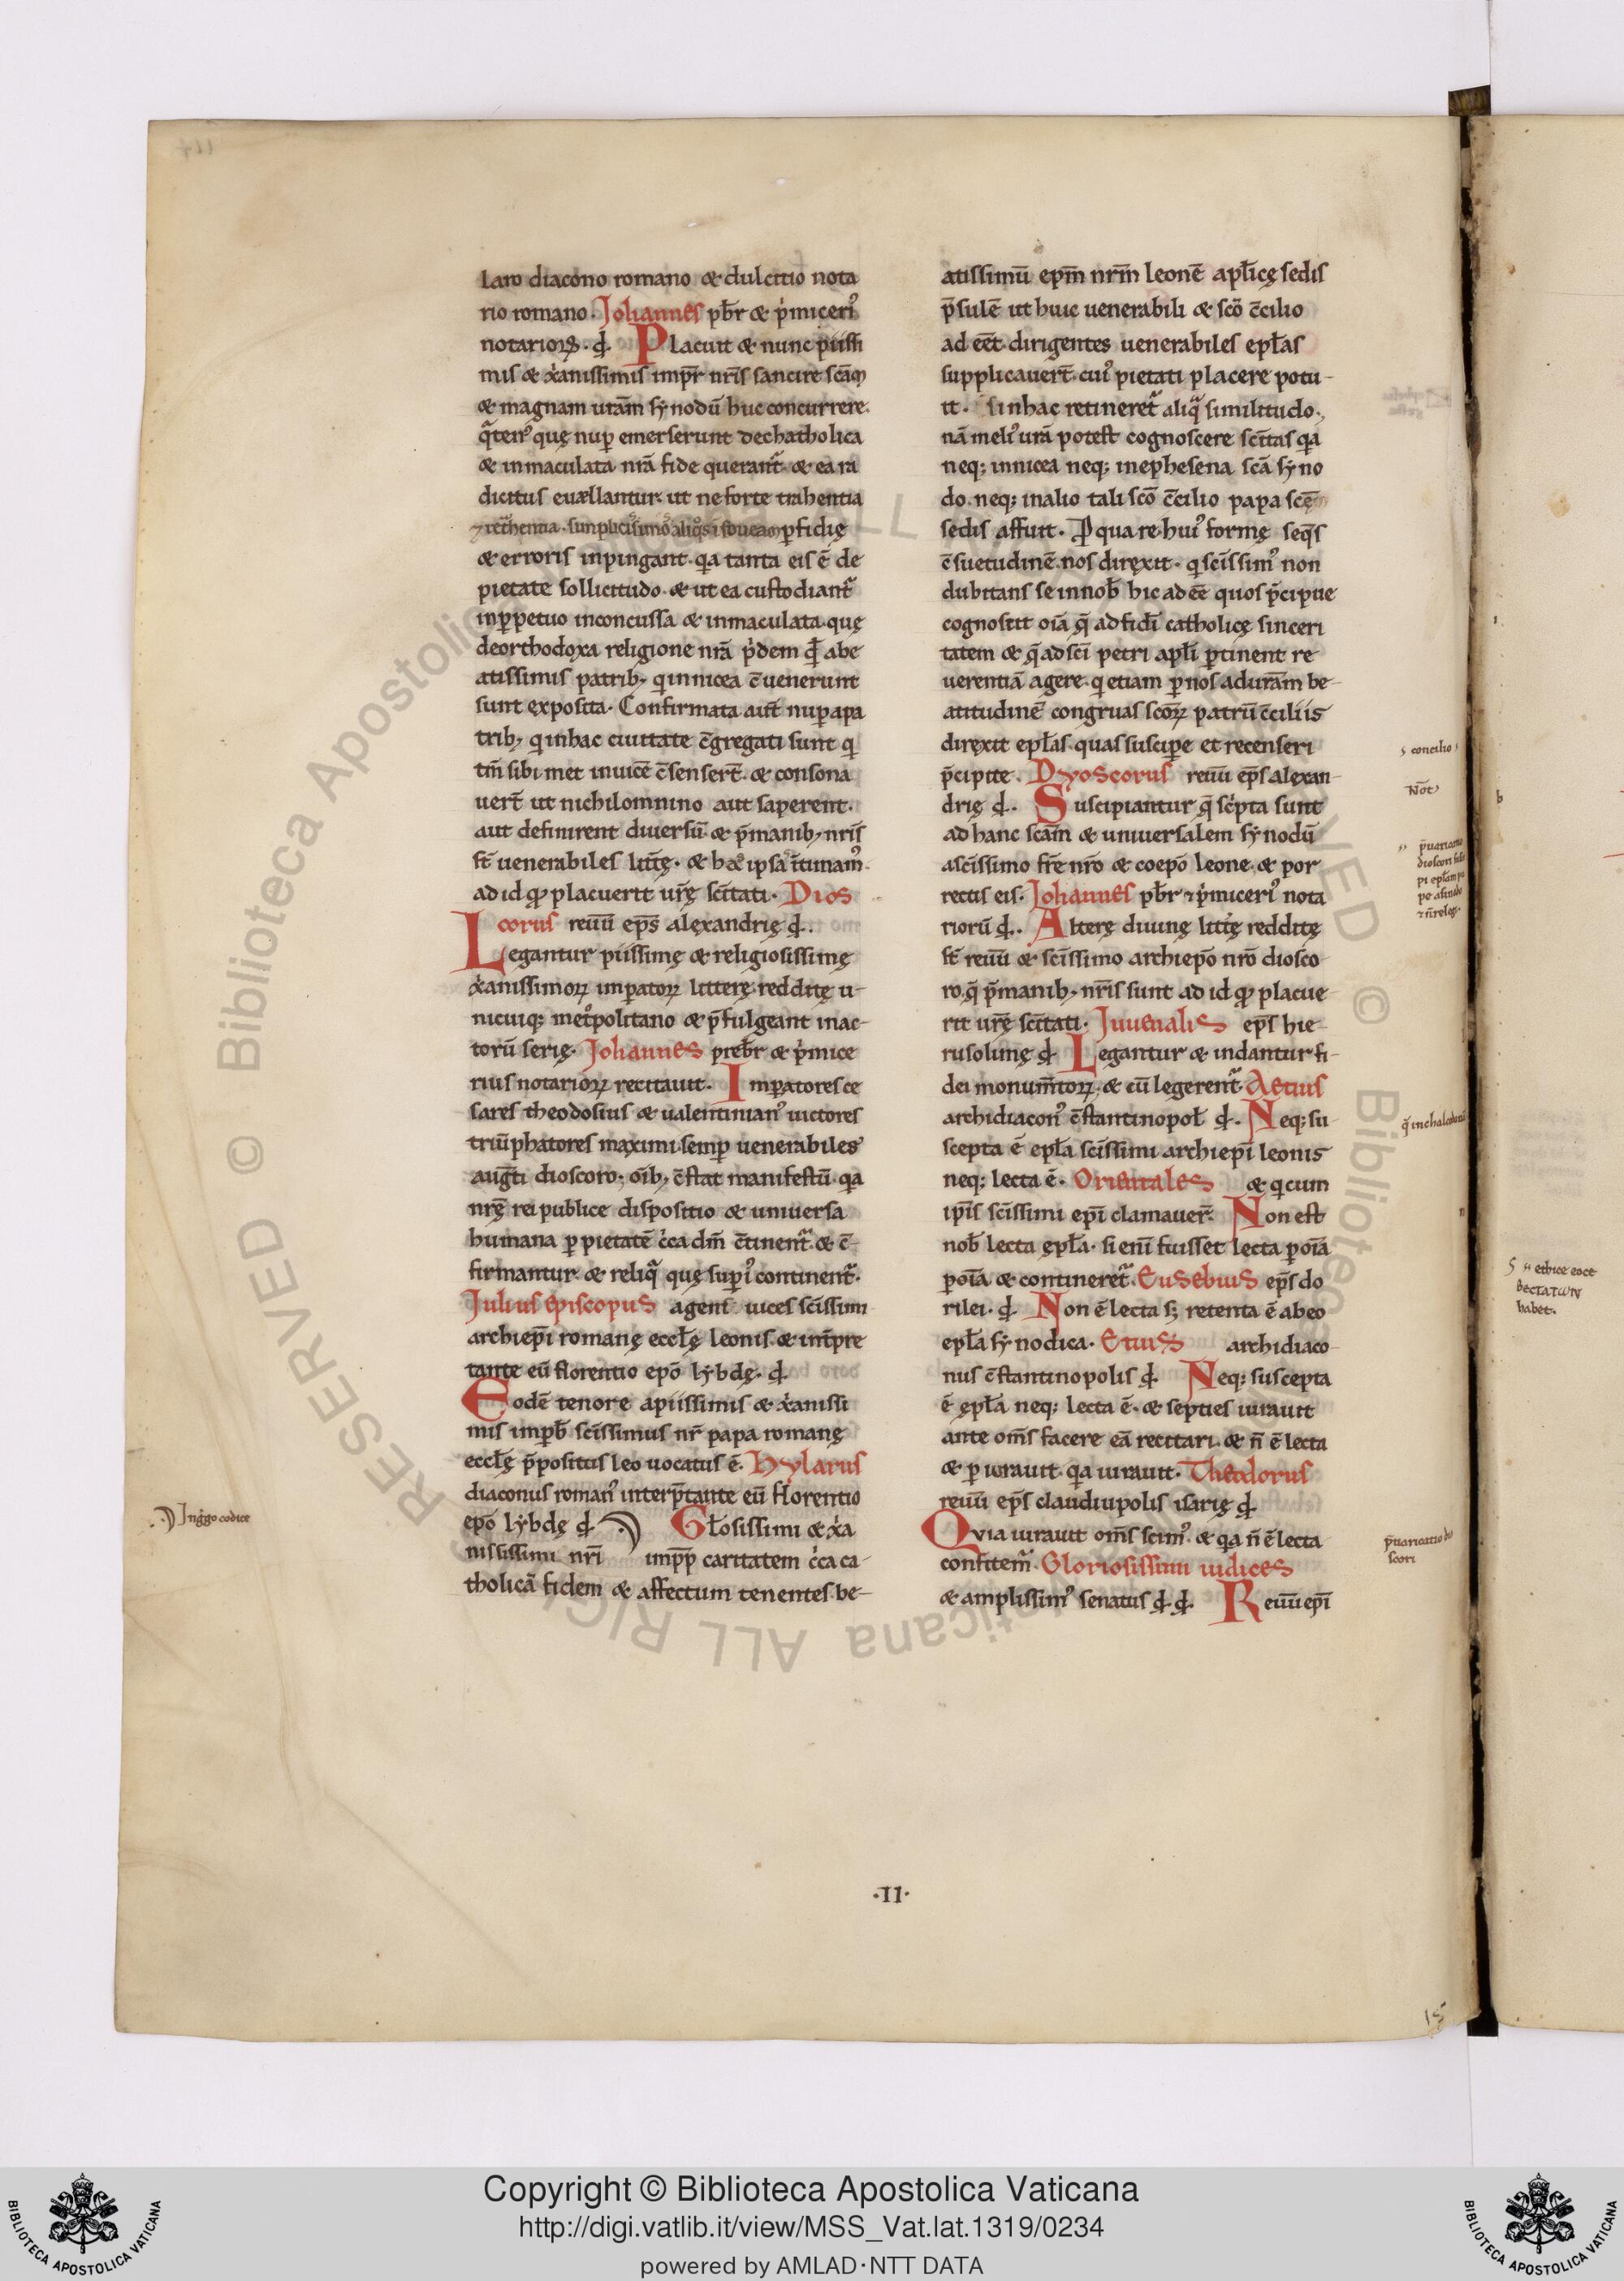 laro diacono romano & dulcitio nota
rio romano. Johannes pbr̄ & p̍miceri᾿
notarioꝝ. đ. Placuit & nunc piissi
mis & xp̄anissimis impr̄ nr̄is sancire scāꝫ
& magnam uram̄ sẏnodū huc concurrere.
q̄ten᾿ quę nuꝑ emerserunt dechatholica
& inmaculata nrā fide querant᷑. & ea ra
dicitus euællantur. ut ne forte trahentia
ꝑfidię
& erroris inpingant. qa tanta eis ē de
pietate sollicitudo. & ut ea custodiant᷑
inꝑpetuo inconcussa & inmaculata. quę
deorthodoxa religione nrā p̍dem abe
atissimis patribꝫ qinnicea c̄uenerunt
sunt exposita. Confirmata aut̄ nuꝑapa
tribꝫ qinhac ciuitate c̄gregati sunt q
tm̄ sibimet inuicē c̄senser̄t. & consona
uer̄t ut nichilomnino aut saperent.
aut definirent diuersū. & p̄manibꝫ nr̄is
st̄ uenerabiles litt̄ę. & hęc ipsa
ad id qđ placuerit ur̄ę scītati. Dios
corus reuū ep̄s alexandrię đ.
Legantur piissimę & religiosissimę
xp̄anissimoꝝ imꝑatoꝝ litterę redditę u-
nicuiqꝫ met͛politano & p̄fulgeant inac-
torū serię. Johannes prebr̄ & p̍mice
rius notarioꝝ recitauit. Imꝑatores ce
sares theodosius & ualentinian᾿ uictores
triūphatores maximi. semꝑ uenerabiles
aug̅ti dioscoro. oīb᾿, c̄stat manifestū. qa
nrę̄ rei publice dispositio & uniuersa
humana ꝑ pietatē c̍ca dm̄ c̄tinent᷑. & c̄-
firmantur. & reliq̄ quę suꝑi᾿ continent᷑.
Julius episcopus agens uices scīssimi
archiepī romanę eccłę leonis. & int̄pre
tante eū florentio epō lẏbdę. đ.
Eodē tenore apiissimis & xp̄anissi
mis imꝑb̄ scīssimus nr̄ papa romanę
eccłę p̄positus leo uocatus ē. Hylarus
diaconus roman᾿ interp̄tante eū florentio
epō lẏbdę đ Głosissimi & xp̄a
nissimi nrī impp̄ caritatem c̍ca ca-
tholicā fidem & affectum tenentes. be-
atissimū epm̄ nrm̄ leonē apłicę sedis
p̄sulē ut huic uenerabili & scō c̄cilio
ad eēt. dirigentes uenerabiles epłas
supplicauer̄t. cui᾿ pietati placere potu-
it. si inhac retineret᷑ aliq̄ similitudo.
nā meli᾿ urā potest cognoscere scītas qa
neqꝫ innicea neqꝫ inephesena scā sẏno
do. neqꝫ inalio tali scō c̄cilio papa scę̄
sedis affuit. Ꝓ qua re. hui᾿ formę seq̄s
c̄suetudinē. nos direxit. q scīssim᾿ non
dubitans se innob̄ hic ad eē. quos p̄cipue
cognoscit oīā q̄ ad fidī catholicę sinceri
tatem & q̄ad scī petri apłi ꝑtinent re
uerentiā agere. q etiam ꝑ nos aduram̄ be-
atitudinē congruas scoꝝ patrū c̄ciliis
direxit epłas. quas suscipe et recenseri
p̄cipite. Dyoscorus reuū ep̄s alexan-
drię đ. Suscipiantur q̄ sc̍pta sunt
ad hanc scām & uniuersalem sẏnodū
ascīssimo fr̄e nr̄o & coepō leone. & por
rectis eis. Johannes pbr̄ ⁊ p̍miceri᾿ nota
riorū đ. Alterę diuinę litt̄ę redditę
st̄ reuū & scīssimo archiepō nrō diosco
ro. q̄ p̄manibꝫ nr̄is sunt. ad id qđ placue-
rit ur̄ę scītati. Juuenalis ep̄s hie-
rusolimę đ Legantur & indantur fi-
dei monum̄toꝝ. & cū legerent᷑. Aetius
archidiacon᾿ c̄stantinopoł đ. Neqꝫ su-
scepta ē epła scīssimi archiepī leonis
neqꝫ lecta ē. Orientales & q cum
ipīs scīssimi epī clamauer̄. Non est
nob̄ lecta epła. si enī fuisset lecta ꝑ oīā
ꝑ oīā & contineret᷑. Eusebius ep̄s do
rilei. đ Non ē lecta sꝫ retenta ē abeo
epła sẏnodica. Etius archidiaco-
nus c̄stantinopolis đ. Neqꝫ suscepta
ē epła neqꝫ lecta ē. & septies iurauit
ante om̄s facere eā recitari. & n̄ ē lecta
& ꝑiurauit. qa iurauit. Theodorus
reuū ep̄s claudiupolis isarię đ
Quia iurauit om̄s scim᾿. & qa n̄ ē lecta
confitem᷑. Gloriosissimi iudices
& amplissim᾿ senatus đ.đ. Reuū epī
Jngg̍o codice
concilio
Not̄
p̄uaricatio
q̄ inchalced
p̄uaricatio dio
scori
habet.
·II·
15
Copyright © Biblioteca Apostolica Vaticana
http://digi.vatlib.it/view/MSS_Vat.lat.1319/0234
powered by AMLAD·NTT DATA
BIBLIOTECA APOSTOLICA VATICANA
BIBLIOTECA APOSTOLICA VATICANA